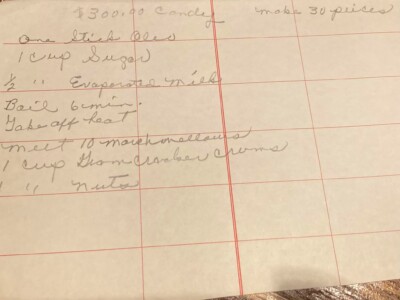 $300.00 Candy make 30 peices
One Stick Oleo
1 Cup Sugar
½ " Evaporated Milk
Boil 6 min.
Take off heat
melt 10 marshmellows
1 cup Gramcracker crums
1 " nuts